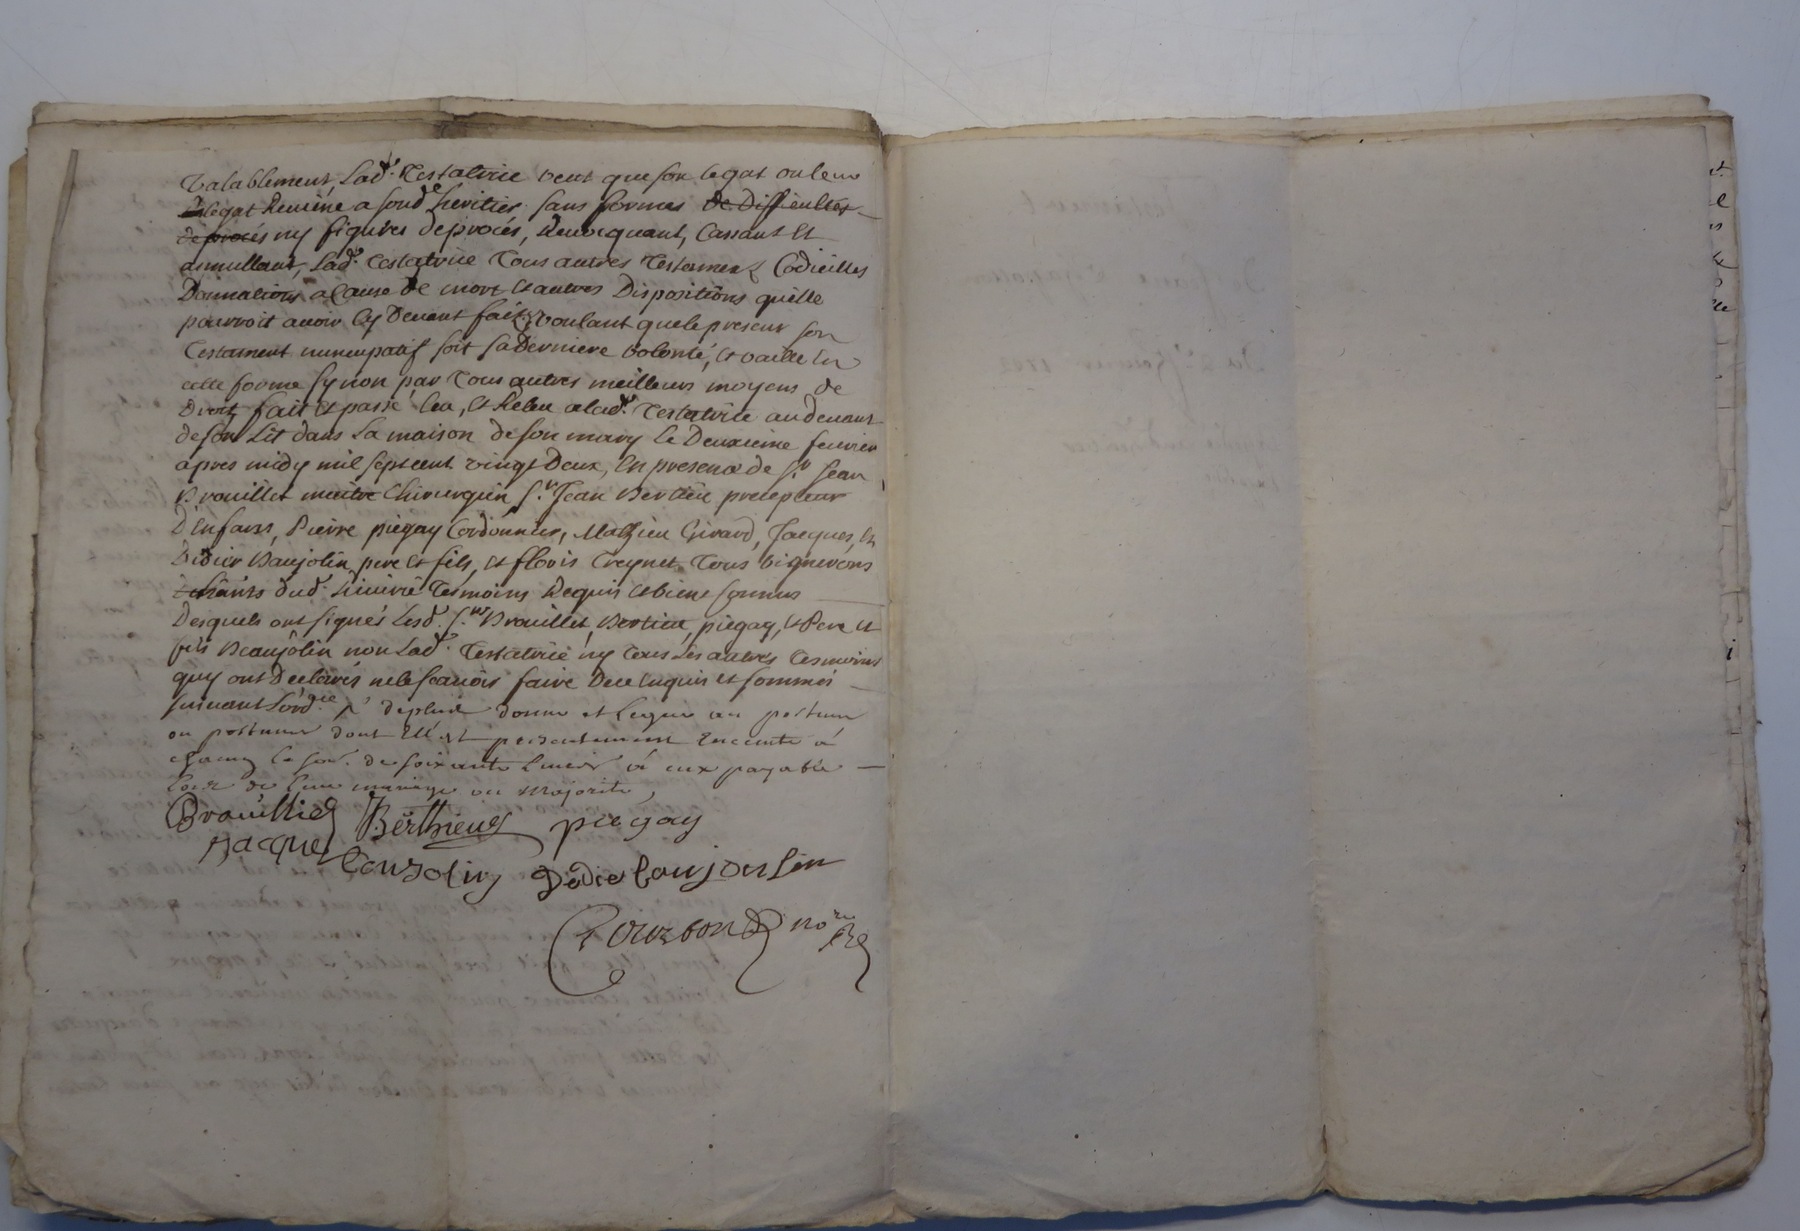 valablement, Lad.e Testatrice veut que son legat ou leur
legat Revienne a sond. heritier sans formes de Difficultés
de procés ny figures de procés, Revocquant, Cassant Et
annullant, Lad.e Testatrice Tous autres Testamens Codicilles
Donnations a Cause de mort Et autres Dispositions quelle
pourroit avoir Cy Devant fait, voulant que le present son
Testament nuncupatif soit sa Derniere volonté, et vaille En
cette forme synon par Tous autres meilleurs moyens de
Droit, fait Et passé leu, Et Releu a lad.e Testatrice au devant
de son Lit dans La maison de son mary le Deuxieme feuvrier
apres midy mil sept cent vingt Deux, En presence de S.r Jean
Brouillet maitre Chirurgien S.r Jean Bertieu precepteur
D'Enfans, Pierre piegay Cordonnier, Mathieu Girard, Jacques, Et
Didier Baujolin pere Et fils, Et floris Treynet Tous vignerons
dud. Tesmoins Requis Et bient Connus
Desquels ont signés Lesd. S.rs Brouillet, Bertieu, piegay, Et Pere Et
fils Beaujolin non Lad.e Testatrice ny Tous Les autres Tesmoins
quy ont Declarés ne le scavoir faire De ce Enquis Et sommés
suivant L'ord.ce de plus donne et legue au postume
ou postumes dont Ell' Est presentement Enceinte a
chacun la som. de soixante Livres a eux payable
lors de leur mariage ou majorité,
Brouillied Berthieud piegay
Jacque boujolin Dèdie boujoulin
Courbon no.re R.l